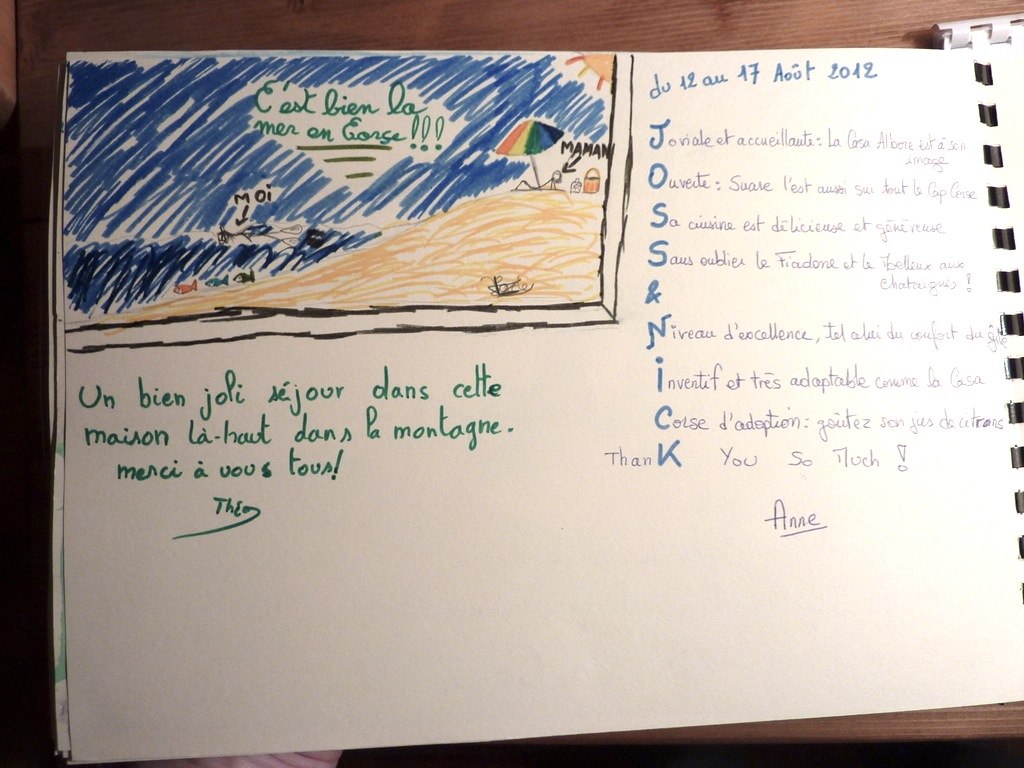 C'est bien la
mer en Corse !!!
MAMAN
MOi
Un bien joli séjour dans cette
maison là-haut dans la montagne.
merci à vous tous!
Théo
du 12 au 17 Août 2012
Joviale et accueillante : La Casa Albore est à son
image
Ouverte : Suare l'est aussi sur tout le Cap Corse
Sa cuisine est délicieuse et généreuse
Sans oublier le Fiadone et le Moelleux aux
chataignes !
&
Niveau d'excellence, tel celui du confort du gîte
inventif et très adaptable comme la Casa
Corse d'adoption : goûtez son jus de citrons
ThanK You So Much !
Anne